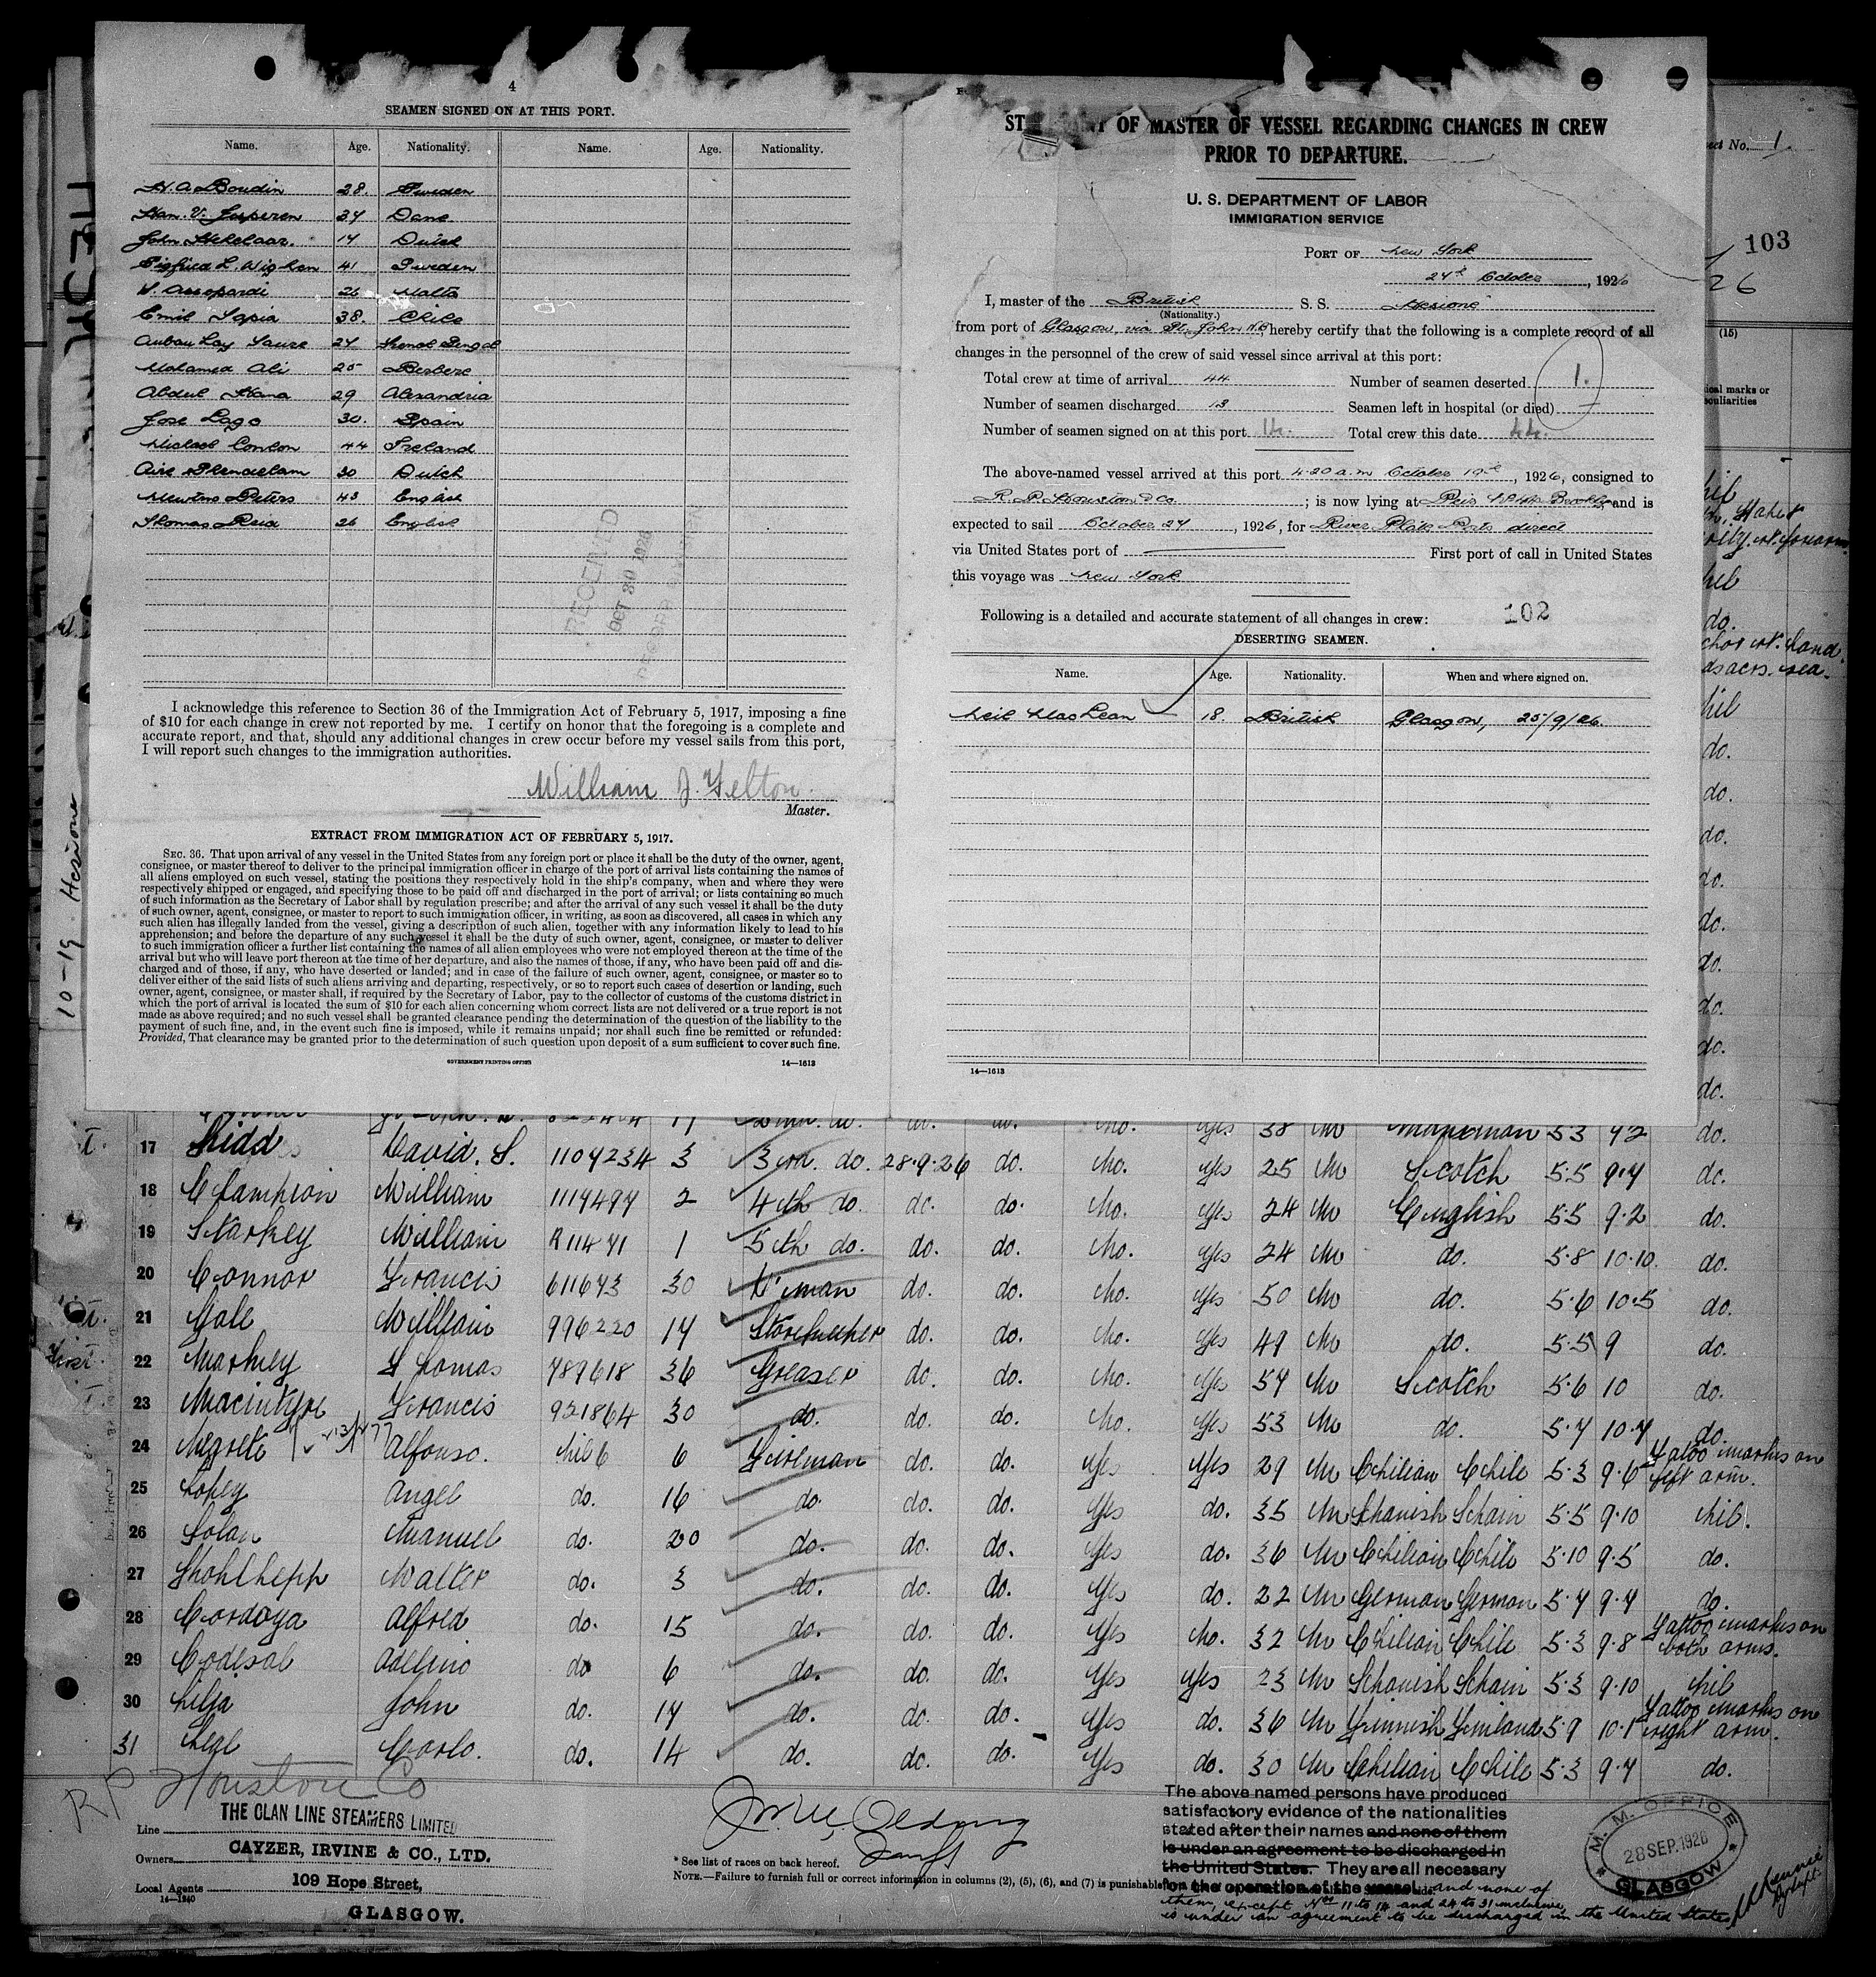 4
SEAMEN SIGNED ON AT THIS PORT.
Name. Age. Nationality. Name. Age. Nationality.
H. A. Boudin 28. Sweden
Han. V. Jesperen 34 Dane
John Stekelaar. 14 Dutch
Sigfried L. Wiglen 41 Sweden
V. Assopardi 26 Malta
Emil Tapia 38. Chile
24
Mohamed Ali 25 Berbere
Abdul Hana 29 Alexandria
Jose Lago 30. Spain
Michael Conlon 44 Ireland
30 Dutch
Peters 43 English
Thomas Reid 26 English
RECEIVED
OCT 30 1926
I acknowledge this reference to Section 36 of the Immigration Act of February 5, 1917, imposing a fine
of $10 for each change in crew not reported by me. I certify on honor that the foregoing is a complete and
accurate report, and that, should any additional changes in crew occur before my vessel sails from this port,
I will report such changes to the immigration authorities.
William J. Yelton.
Master.
EXTRACT FROM IMMIGRATION ACT OF FEBRUARY 5, 1917.
SEC. 36. That upon arrival of any vessel in the United States from any foreign port or place it shall be the duty of the owner, agent,
consignee, or master thereof to deliver to the principal immigration officer in charge of the port of arrival lists containing the names of
all aliens employed on such vessel, stating the positions they respectively hold in the ship's company, when and where they were
respectively shipped or engaged, and specifying those to be paid off and discharged in the port of arrival; or lists containing so much
of such information as the Secretary of Labor shall by regulation prescribe; and after the arrival of any such vessel it shall be the duty
of such owner, agent, consignee, or master to report to such immigration officer, in writing, as soon as discovered, all cases in which any
such alien has illegally landed from the vessel, giving a description of such alien, together with any information likely to lead to his
apprehension; and before the departure of any such vessel it shall be the duty of such owner, agent, consignee, or master to deliver
to such immigration officer a further list containing the names of all alien employees who were not employed thereon at the time of the
arrival but who will leave port thereon at the time of her departure, and also the names of those, if any, who have been paid off and dis-
charged and of those, if any, who have deserted or landed; and in case of the failure of such owner, agent, consignee, or master so to
deliver either of the said lists of such aliens arriving and departing, respectively, or so to report such cases of desertion or landing, such
owner, agent, consignee, or master shall, if required by the Secretary of Labor, pay to the collector of customs of the customs district in
which the port of arrival is located the sum of $10 for each alien concerning whom correct lists are not delivered or a true report is not
made as above required; and no such vessel shall be granted clearance pending the determination of the question of the liability to the
payment of such fine, and, in the event such fine is imposed, while it remains unpaid; nor shall such fine be remitted or refunded:
Provided, That clearance may be granted prior to the determination of such question upon deposit of a sum sufficient to cover such fine.
GOVERNMENT PRINTING OFFICE 14—1613
OF MASTER OF VESSEL REGARDING CHANGES IN CREW
PRIOR TO DEPARTURE.
U. S. DEPARTMENT OF LABOR
IMMIGRATION SERVICE
PORT OF New York
24th October, 1926
I, master of the British S. S. Hesione
(Nationality.)
from port of Glasgow, via St. John N.B, hereby certify that the following is a complete record of all
changes in the personnel of the crew of said vessel since arrival at this port:
Total crew at time of arrival 44 Number of seamen deserted 1.
Number of seamen discharged 13 Seamen left in hospital (or died) —
Number of seamen signed on at this port 14. Total crew this date 44.
The above-named vessel arrived at this port 4.20 a.m October 19th, 1926, consigned to
R. P. Houston & Co ; is now lying at Brooklyn and is
expected to sail October 24, 1926, for River Plate Ports direct
via United States port of First port of call in United States
this voyage was New York
Following is a detailed and accurate statement of all changes in crew: 102
DESERTING SEAMEN.
Name. Age. Nationality. When and where signed on.
Neil MacLean 18. British Glasgow, 25/9/26.
14—1613
No. 1.
103
26
(15)
10-19 Hesione
17 Kidd David. S. 1104234 3 3rd. do. 28.9.26 do. No. Yes 25 M Scotch 5.5 9.4 do.
18 Champion William 1114494 2 4th do. do. do. No. Yes 24 M English 5.5 9.2 do.
19 Starkey William R11471 1 5th do. do. do. No. Yes 24 M do. 5.8 10.10. do.
20 Connor Francis 611643 30 D'man do. do. No. Yes 50 M do. 5.6 10.5 do.
21 Gale William 996220 14 Storekeeper do. do. No. Yes 49 M do. 5.5 9 do.
22 Markey Thomas 789618 36 Greaser do. do. No. Yes 54 M Scotch 5.6 10 do.
23 Macintyre Francis 921864 30 do. do. do. No. Yes 53 M do. 5.4 10.4 do.
24 Negrete Alfonso. Nil 6 6 Fireman do. do. Yes Yes 29 M Chilian Chile 5.3 9.6 Tattoo marks on left arm.
25 Lopez Angel do. 16 do. do. do. Yes do. 35 M Spanish Spain 5.5 9.10 Nil.
26 Solan Manuel do. 20 do. do. do. Yes do. 36 M Chilian Chile 5.10 9.5 do.
27 Walter do. 3 do. do. do. Yes do. 22 M German German 5.4 9.4 do.
28 Cordoya Alfred do. 15 do. do. do. Yes No. 32 M Chilian Chile 5.3 9.8 Tattoo marks on both arms.
29 Codesal Adelino do 6 do. do. do. Yes Yes 23 M Spanish Spain 5.3 9.10 Nil
30 Lilja John do. 14 do. do. do. Yes do. 36 M Finnish Finland 5.9 10.1 Tattoo marks on right arm.
31 Leal Carlo. do. 14 do. do. do. Yes do. 30 M Chilian Chile 5.3 9.4 do.
RP Houston Co
Line THE CLAN LINE STEAMERS LIMITED
Owners CAYZER, IRVINE & CO., LTD.
Local Agents 109 Hope Street,
14—1240
GLASGOW.
* See list of races on back hereof.
NOTE.—Failure to furnish full or correct information in columns (2), (5), (6), and (7) is punishable
The above named persons have produced
satisfactory evidence of the nationalities
stated after their names and none of them
is under an agreement to be discharged in
the United States. They are all necessary
for the operation of the vessel. and none of
them, except Nos 11 to 14 and 24 to 31 inclusive,
is under an agreement to be discharged in the United States.
M. M. OFFICE
28 SEP. 1926
GLASGOW